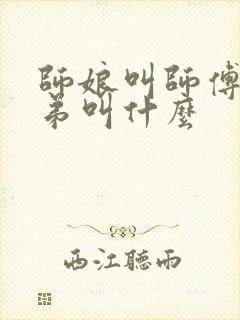 師娘叫師傅
弟叫什麼
西江聽雨